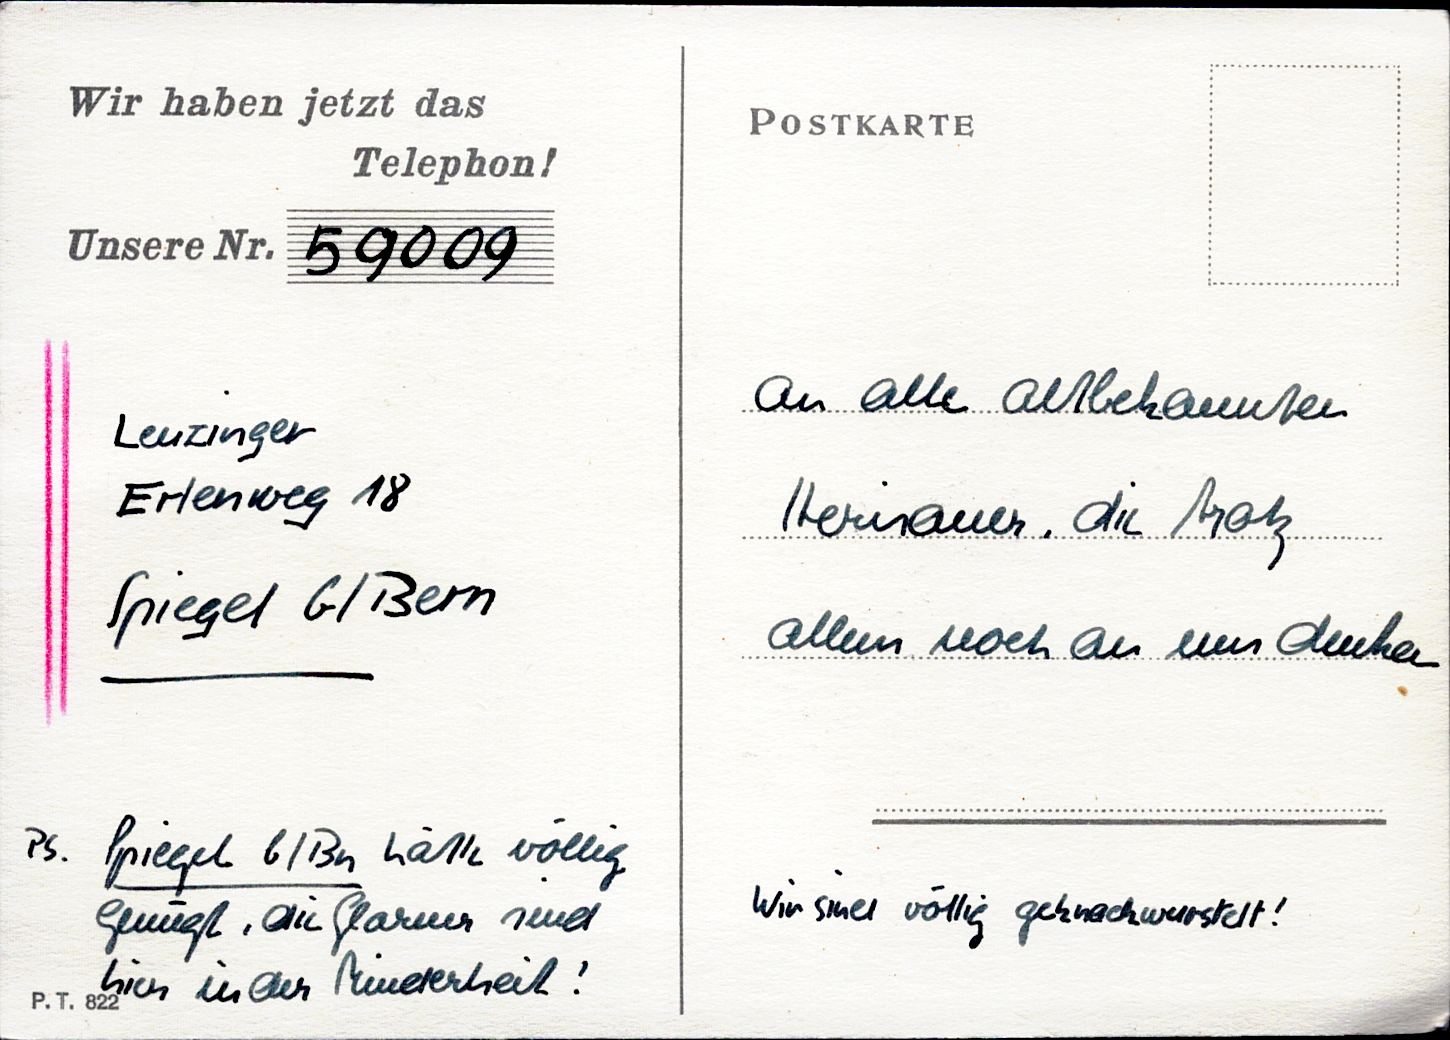 Wir haben jetzt das
Telephon!
Unsere Nr. 59009
Leuzinger
Erlenweg 18
Spiegel b/Bern
PS. Spiegel b/Bn hätte völlig
genügt, die Glarner sind
hier in der Minderheit!
P.T. 822
POSTKARTE
an alle altbekannten
Herisauer, die trotz
allem noch an uns denken
Wir sind völlig geknackwurstelt!